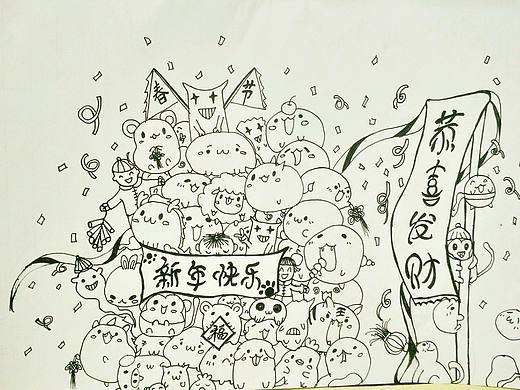 春节
新年快乐
福
恭喜发财